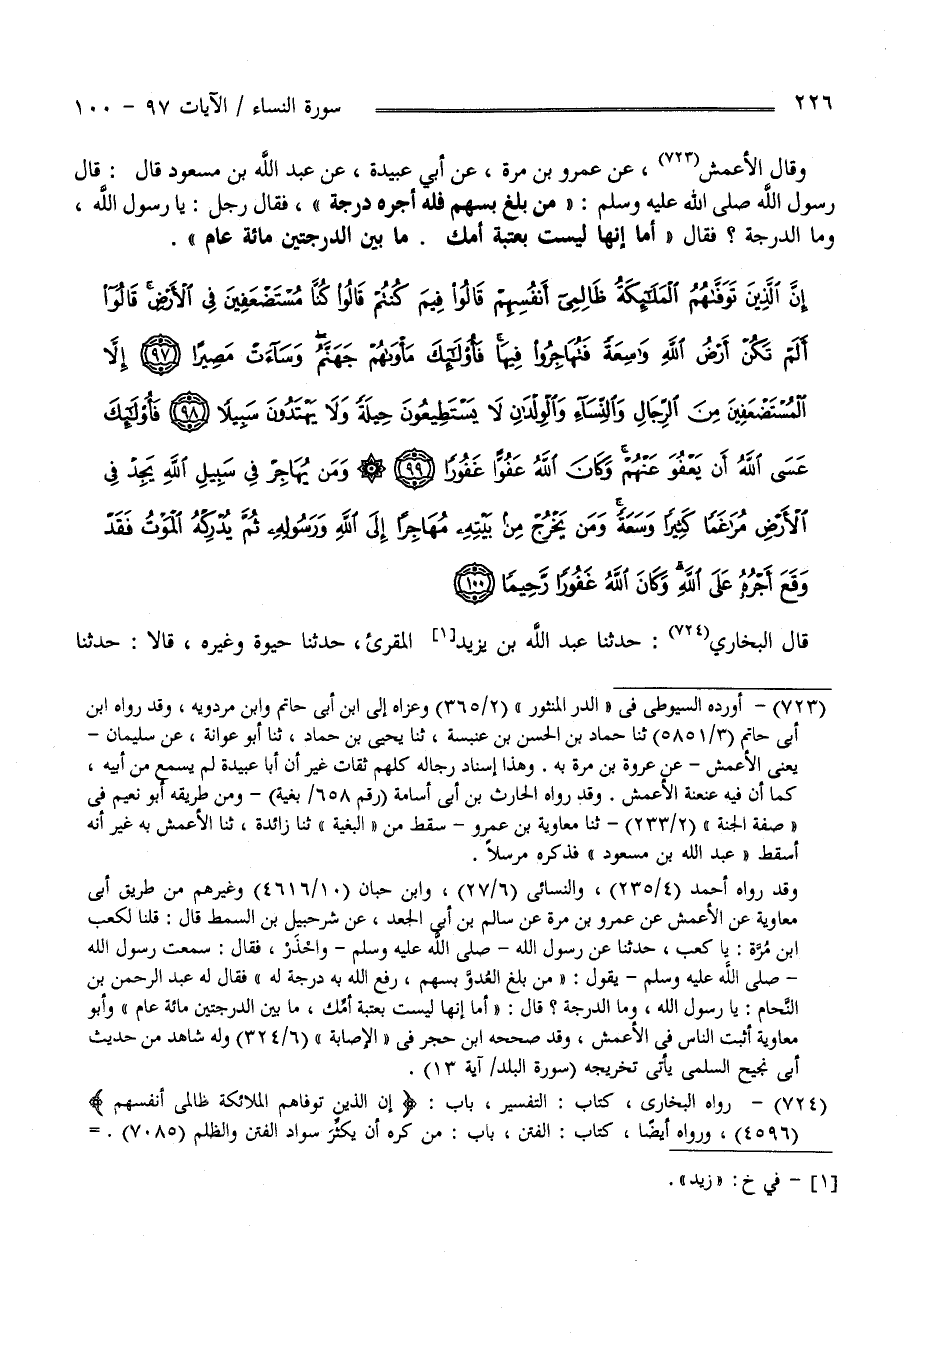 ٢٢٦ سورة النساء / الآيات ٩٧ - ١٠٠
وقال الأعمش(٧٢٣) ، عن عمرو بن مرة ، عن أبي عبيدة ، عن عبد اللَّه بن مسعود قال : قال
رسول اللَّه صلى الله عليه وسلم : « من بلغ بسهم فله أجره درجة » ، فقال رجل : يا رسول اللَّه ،
وما الدرجة ؟ فقال « أما إنها ليست بعتبة أمك . ما بين الدرجتين مائة عام » .
إِنَّ ٱلَّذِينَ تَوَفَّىٰهُمُ ٱلْمَلَٰٓئِكَةُ ظَالِمِىٓ أَنفُسِهِمْ قَالُوا۟ فِيمَ كُنتُمْ قَالُوا۟ كُنَّا مُسْتَضْعَفِينَ فِى ٱلْأَرْضِ ۚ قَالُوٓا۟
أَلَمْ تَكُنْ أَرْضُ ٱللَّهِ وَٰسِعَةً فَتُهَاجِرُوا۟ فِيهَا ۚ فَأُو۟لَٰٓئِكَ مَأْوَىٰهُمْ جَهَنَّمُ ۖ وَسَآءَتْ مَصِيرًا ٩٧ إِلَّا
ٱلْمُسْتَضْعَفِينَ مِنَ ٱلرِّجَالِ وَٱلنِّسَآءِ وَٱلْوِلْدَٰنِ لَا يَسْتَطِيعُونَ حِيلَةً وَلَا يَهْتَدُونَ سَبِيلًا ٩٨ فَأُو۟لَٰٓئِكَ
عَسَى ٱللَّهُ أَن يَعْفُوَ عَنْهُمْ ۚ وَكَانَ ٱللَّهُ عَفُوًّا غَفُورًا ٩٩ ۞ وَمَن يُهَاجِرْ فِى سَبِيلِ ٱللَّهِ يَجِدْ فِى
ٱلْأَرْضِ مُرَٰغَمًا كَثِيرًا وَسَعَةً ۚ وَمَن يَخْرُجْ مِنۢ بَيْتِهِۦ مُهَاجِرًا إِلَى ٱللَّهِ وَرَسُولِهِۦ ثُمَّ يُدْرِكْهُ ٱلْمَوْتُ فَقَدْ
وَقَعَ أَجْرُهُۥ عَلَى ٱللَّهِ ۗ وَكَانَ ٱللَّهُ غَفُورًا رَّحِيمًا ١٠٠
قال البخاري(٧٢٤) : حدثنا عبد اللَّه بن يزيد[١] المقرئ، حدثنا حيوة وغيره ، قالا : حدثنا
(٧٢٣) - أورده السيوطى فى « الدر المنثور » (٣٦٥/٢) وعزاه إلى ابن أبى حاتم وابن مردويه ، وقد رواه ابن
أبى حاتم (٥٨٥١/٣) ثنا حماد بن الحسن بن عنبسة ، ثنا يحيى بن حماد ، ثنا أبو عوانة ، عن سليمان -
يعنى الأعمش - عن عروة بن مرة به . وهذا إسناد رجاله كلهم ثقات غير أن أبا عبيدة لم يسمع من أبيه ،
كما أن فيه عنعنة الأعمش . وقد رواه الحارث بن أبى أسامة (رقم ٦٥٨/ بغية) - ومن طريقه أبو نعيم فى
« صفة الجنة » (٢٣٣/٢) - ثنا معاوية بن عمرو - سقط من « البغية » ثنا زائدة ، ثنا الأعمش به غير أنه
أسقط « عبد الله بن مسعود » فذكره مرسلاً .
وقد رواه أحمد (٢٣٥/٤) ، والنسائى (٢٧/٦) ، وابن حبان (٤٦١٦/١٠) وغيرهم من طريق أبى
معاوية عن الأعمش عن عمرو بن مرة عن سالم بن أبي الجعد ، عن شرحبيل بن السمط قال : قلنا لكعب
ابن مُرَّة : يا كعب ، حدثنا عن رسول الله - صلى اللَّه عليه وسلم - واحْذَرْ ، فقال : سمعت رسول الله
- صلى اللَّه عليه وسلم - يقول : « من بلغ العُدوَّ بسهم ، رفع الله به درجة له » فقال له عبد الرحمن بن
النَّحام : يا رسول الله ، وما الدرجة ؟ قال : « أما إنها ليست بعتبة أمِّك ، ما بين الدرجتين مائة عام » وأبو
معاوية أثبت الناس فى الأعمش ، وقد صححه ابن حجر فى « الإصابة » (٣٢٤/٦) وله شاهد من حديث
أبى نجيح السلمى يأتى تخريجه (سورة البلد/ آية ١٣) .
(٧٢٤) - رواه البخارى ، كتاب : التفسير ، باب : ﴿ إن الذين توفاهم الملائكة ظالمى أنفسهم ﴾
(٤٥٩٦) ، ورواه أيضًا ، كتاب : الفتن ، باب : من كره أن يكثِّرَ سواد الفتن والظلم (٧٠٨٥) . =
[١] - في خ : «زيد» .